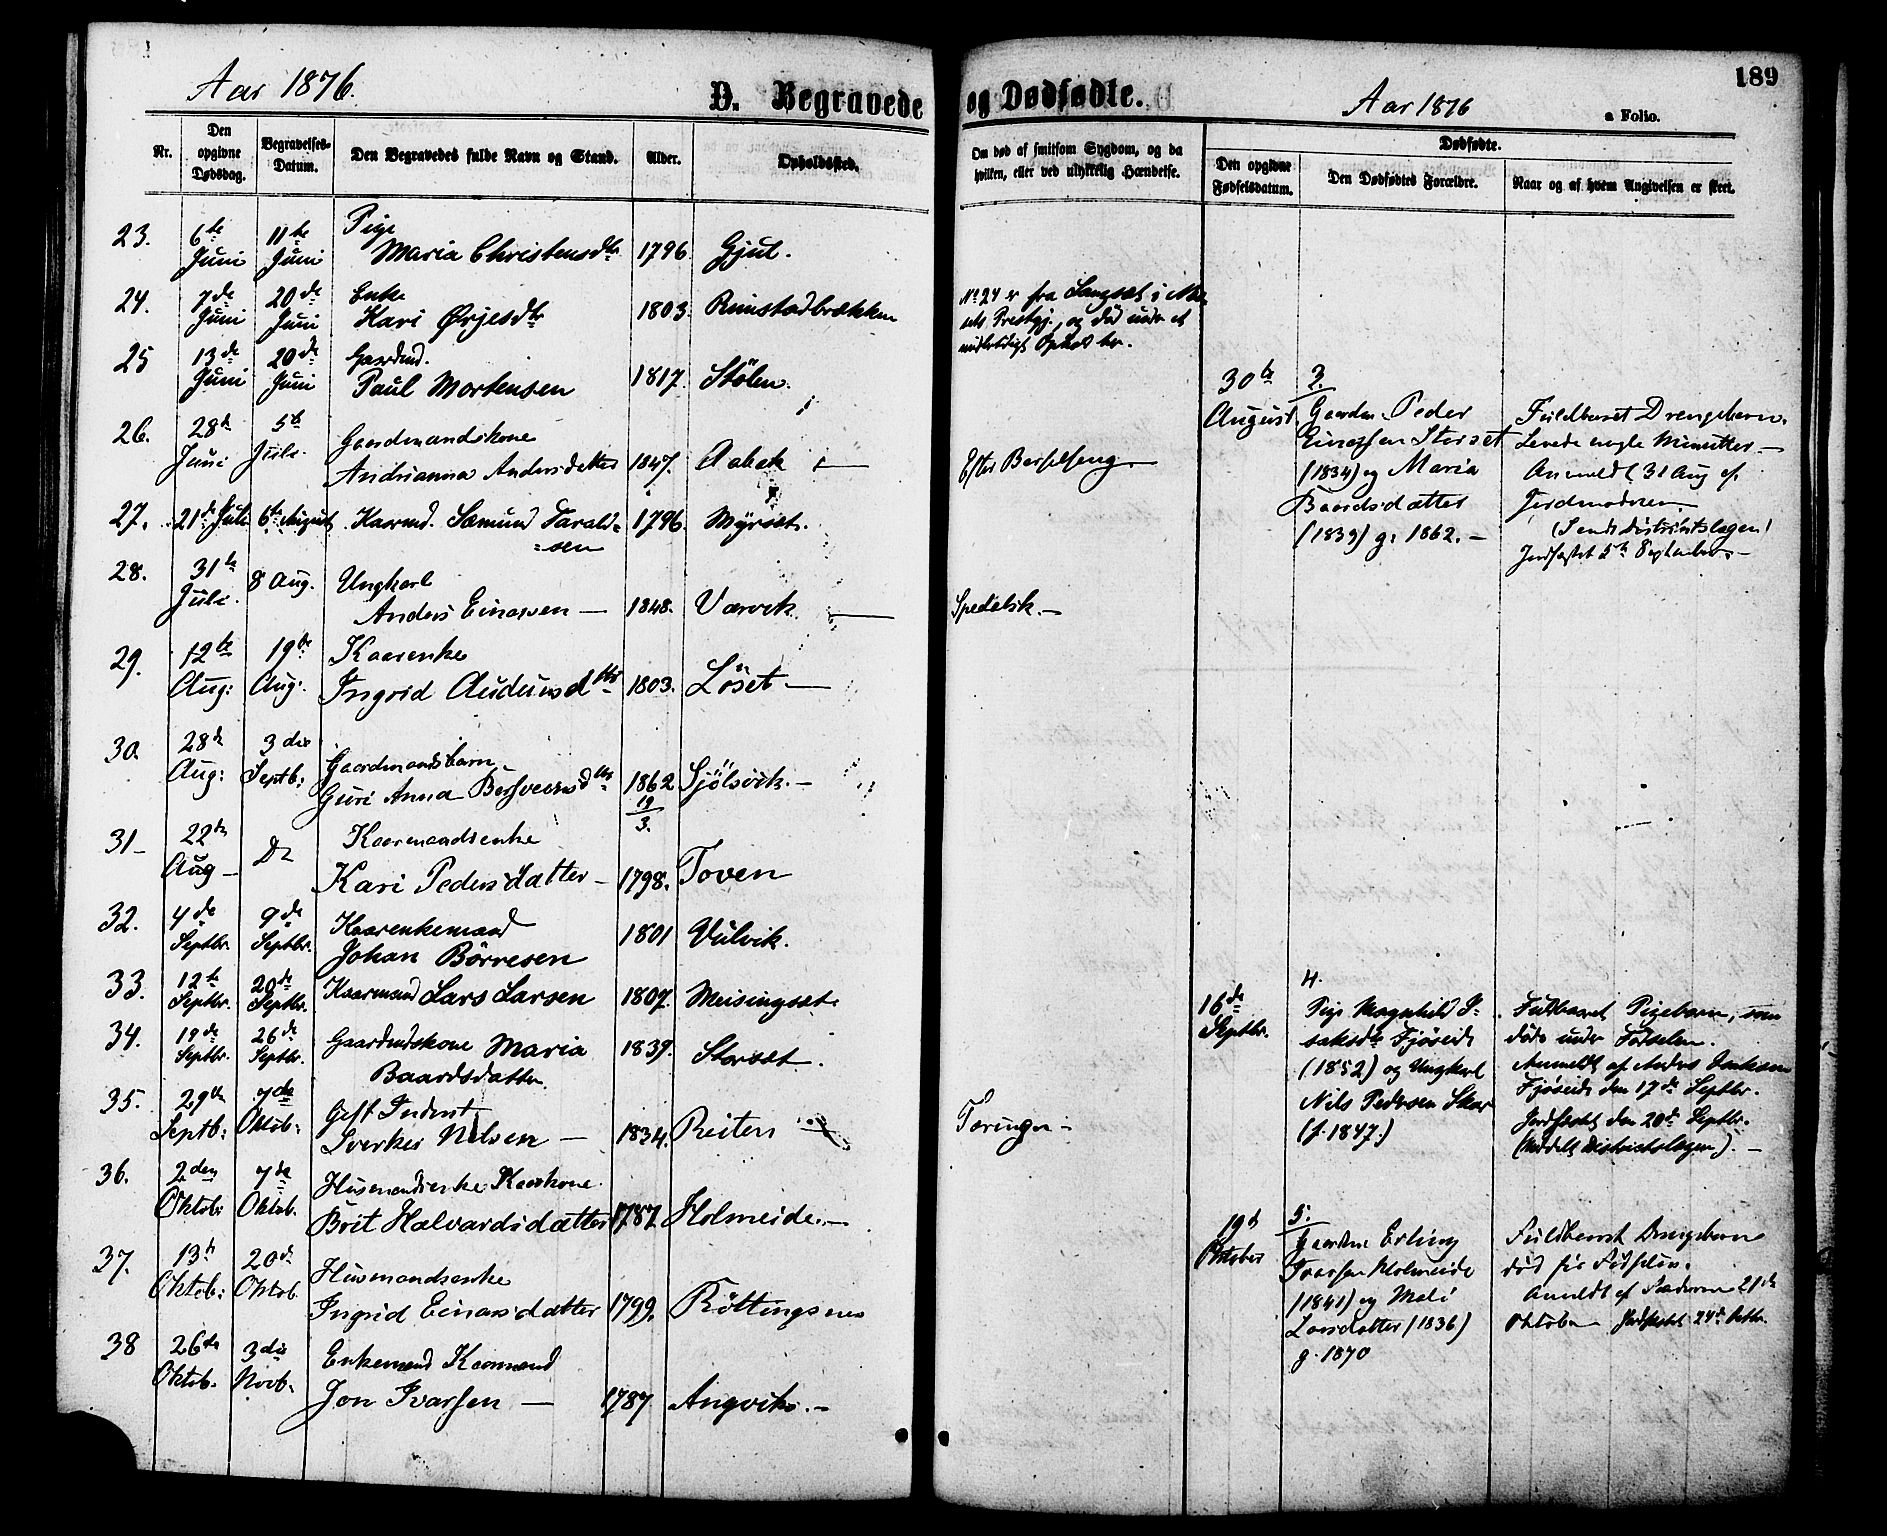 Aar 1876.
D. Begravede
Nr.
Den opgivne Dødsdag.
Begravelses-Datum.
Den Begravedes fulde Navn og Stand.
Alder.
Opholdssted.
23. 6te Juni 11te Juni Pige
Maria Christensdtr 1796 Gjul.
24. 7de Juni 20de Juni Enke
Kari Ørjesdtr 1803. Rimstadbrækken
25 13de Juni 20de Juni Gaardmd.
Paul Mortensen 1817. Stölen.
26. 28de Juni 5te Juli Gaardmandskone
Andrianna Andersdatter 1847. Aabak
27. 21de Juli 6te August Kaarmd. Sæmund Tarald=
=sen 1796. Myrset.
28. 31te Juli. 8 Aug. Ungkarl
Anders Einarsen — 1848. Værvik
29. 12te Aug: 19de Aug: Kaarenke
Ingrid Audunsdtr 1803. Löset —
30. 28de Aug: 3die Septb: Gaardmandsbarn
Guri Anna Bersveensdtr 1862 19/3. Sjölsvik. —
31 – 22de Aug – Do Kaarmandsenke
Kari Pedersdatter – 1798. Toven
32. 4de Septbr. 9de Septbr. Kaarenkemand
Johan Börresen 1801 Vulvik.
33. 12te Septbr. 20de Septbr. Kaarmand Lars Larsen 1807. Meisingset.
34. 19de Septbr. 26de Septbr. Gaardmdskone Maria
Baardsdatter 1839. Storset.
35. 29de Septb: 7de Oktob: Gift Inderst
Sverker Nilsen — 1834. Reiten
36. 2den Oktob: 7de Oktob. Husmandsenke Kaarkone
Brit Halvardsdatter 1787. Holmeide. —
37. 13de Oktob: 20de Oktob. Husmandsenke
Ingrid Einarsdatter 1799. Röttingsnes
38 26de Oktob. 3die Novb. Enkemand Kaarmand
Jon Ivarsen — 1787 Angvik. –
og Dødfødte.
Aar 1876
a Folio.
189
Om død af smitsom Sygdom, og da hvilken, eller ved ulykkelig Hændelse.
Dødfødte.
Den opgivne Fødselsdatum.
Den Dødfødtes Forældre.
Naar og af hvem Angivelsen er skeet.
No 24 er fra Langset i
sets Prestgj., og död under et
midlertidigt Ophold her.
Efter Barselseng —
Spedalsk. —
Tæringen –
30te August.
3.
Gaardm. Peder
Einarsen Storset
(1834) og Maria
Baardsdatter
(1839) g. 1862. –
Fuldbaaret Drengebarn.
Levede nogle Minutter. —
Anmeldt 31 Aug af
Jordmoderen
Jordfæstet 5te September –
16de Septbr.
4.
Pige Magnhild I-
saksdtr Fjöseide
(1852) og Ungkarl
Nils Pedersen Skar
(f. 1847.)
Fuldbaaret Pigebarn, som
döde under Födselen.
Anmeldt af Anders Isaksen
Fjöseide den 17de Septbr.
Jordfæstet den 20de Septbr.
(Meddelt Distriktslægen). —
19de Oktober
5.
Gaardm. Erling
Ivarsen Holmeide
(1841) og Mali
Larsdatter (1836)
g. 1870
Fuldbaaret Drengebarn
död för Födselen.
Anmeldt af Faderen 21de
Oktober Jordfæstet 24de Oktbr.